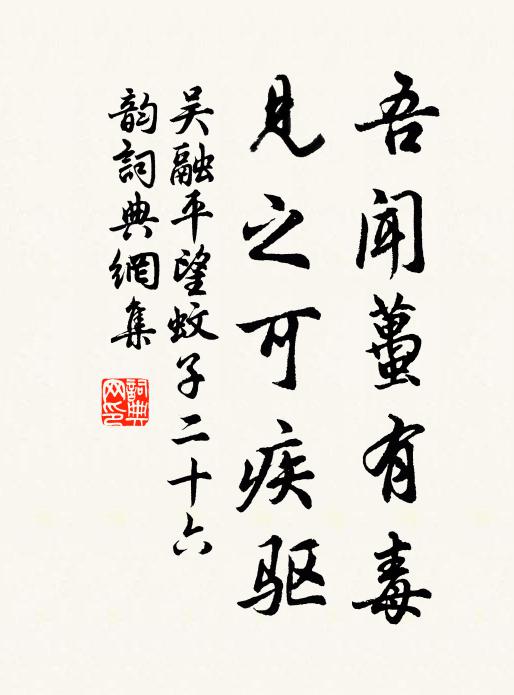 吾闻蠆有毒
見之可疾驱
吴融平望蚊子二十六
韵詞典網集
詞典
网印